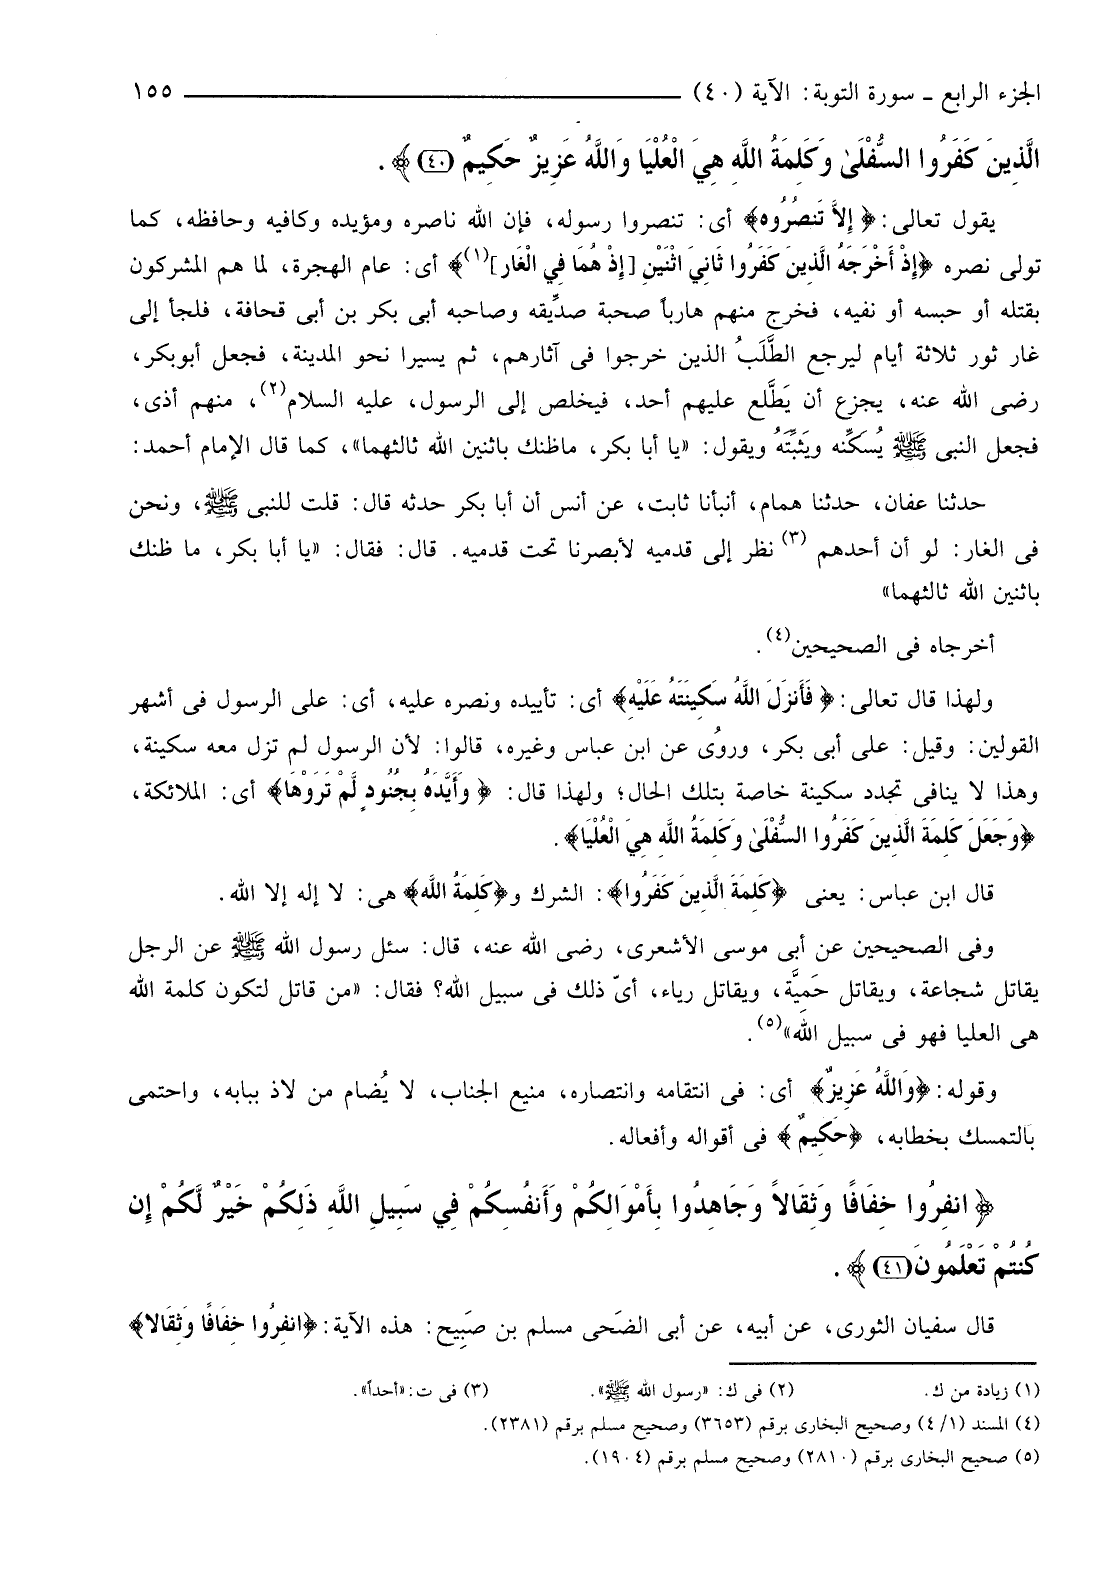 الجزء الرابع ـ سورة التوبة: الآية (٤٠) ١٥٥
الَّذِينَ كَفَرُوا السُّفْلَىٰ وَكَلِمَةُ اللَّهِ هِيَ الْعُلْيَا وَاللَّهُ عَزِيزٌ حَكِيمٌ (٤٠)﴾.
يقول تعالى: ﴿إِلاَّ تَنصُرُوه﴾ أى: تنصروا رسوله، فإن الله ناصره ومؤيده وكافيه وحافظه، كما
تولى نصره ﴿إِذْ أَخْرَجَهُ الَّذِينَ كَفَرُوا ثَانِيَ اثْنَيْنِ [إِذْ هُمَا فِي الْغَارِ](١)﴾ أى: عام الهجرة، لما هم المشركون
بقتله أو حبسه أو نفيه، فخرج منهم هارباً صحبة صدِّيقه وصاحبه أبى بكر بن أبى قحافة، فلجأ إلى
غار ثور ثلاثة أيام ليرجع الطَّلَبُ الذين خرجوا فى آثارهم، ثم يسيرا نحو المدينة، فجعل أبوبكر،
رضى الله عنه، يجزع أن يَطَّلع عليهم أحد، فيخلص إلى الرسول، عليه السلام(٢)، منهم أذى،
فجعل النبى ﷺ يُسَكِّنه ويَثبِّتَهُ ويقول: «يا أبا بكر، ماظنك باثنين الله ثالثهما»، كما قال الإمام أحمد:
حدثنا عفان، حدثنا همام، أنبأنا ثابت، عن أنس أن أبا بكر حدثه قال: قلت للنبى ﷺ، ونحن
فى الغار: لو أن أحدهم (٣) نظر إلى قدميه لأبصرنا تحت قدميه. قال: فقال: «يا أبا بكر، ما ظنك
باثنين الله ثالثهما»
أخرجاه فى الصحيحين(٤).
ولهذا قال تعالى: ﴿فَأَنزَلَ اللَّهُ سَكِينَتَهُ عَلَيْهِ﴾ أى: تأييده ونصره عليه، أى: على الرسول فى أشهر
القولين: وقيل: على أبى بكر، وروُى عن ابن عباس وغيره، قالوا: لأن الرسول لم تزل معه سكينة،
وهذا لا ينافى تجدد سكينة خاصة بتلك الحال؛ ولهذا قال: ﴿وَأَيَّدَهُ بِجُنُودٍ لَّمْ تَرَوْهَا﴾ أى: الملائكة،
﴿وَجَعَلَ كَلِمَةَ الَّذِينَ كَفَرُوا السُّفْلَىٰ وَكَلِمَةُ اللَّهِ هِيَ الْعُلْيَا﴾.
قال ابن عباس: يعنى ﴿كَلِمَةَ الَّذِينَ كَفَرُوا﴾: الشرك و﴿كَلِمَةُ اللَّه﴾ هى: لا إله إلا الله.
وفى الصحيحين عن أبى موسى الأشعرى، رضى الله عنه، قال: سئل رسول الله ﷺ عن الرجل
يقاتل شجاعة، ويقاتل حَمِيَّة، ويقاتل رياء، أىّ ذلك فى سبيل الله؟ فقال: «من قاتل لتكون كلمة الله
هى العليا فهو فى سبيل الله»(٥).
وقوله: ﴿وَاللَّهُ عَزِيزٌ﴾ أى: فى انتقامه وانتصاره، منيع الجناب، لا يُضام من لاذ ببابه، واحتمى
بالتمسك بخطابه، ﴿حَكِيمٌ﴾ فى أقواله وأفعاله.
﴿انفِرُوا خِفَافًا وَثِقَالاً وَجَاهِدُوا بِأَمْوَالِكُمْ وَأَنفُسِكُمْ فِي سَبِيلِ اللَّهِ ذَلِكُمْ خَيْرٌ لَّكُمْ إِن
كُنتُمْ تَعْلَمُونَ (٤١)﴾.
قال سفيان الثورى، عن أبيه، عن أبى الضَحى مسلم بن صَبِيح: هذه الآية: ﴿انفِرُوا خِفَافًا وَثِقَالا﴾
(١) زيادة من ك. (٢) فى ك: «رسول الله ﷺ». (٣) فى ت: «أحداً».
(٤) المسند (٤/١) وصحيح البخارى برقم (٣٦٥٣) وصحيح مسلم برقم (٢٣٨١).
(٥) صحيح البخارى برقم (٢٨١٠) وصحيح مسلم برقم (١٩٠٤).